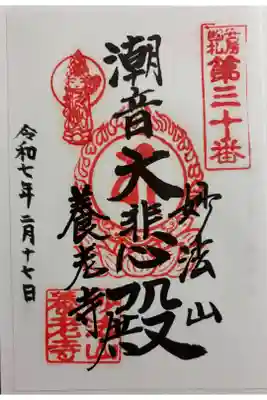 安房
国札
第三十番
妙法山
潮音大悲殿
養老寺
養老寺
令和七年二月十七日